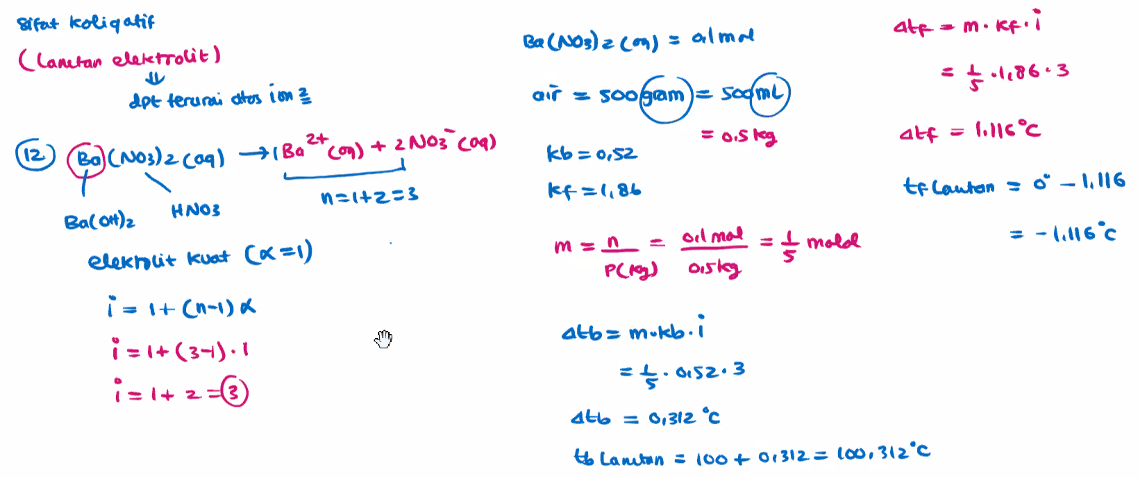 Sifat koligatif
(Larutan elektrolit)
⇓
dpt terurai atas ion²
(12) Ba(NO3)2(aq) → 1Ba²⁺(aq) + 2NO3⁻(aq)
n=1+2=3
Ba(OH)2 HNO3
elektrolit kuat (α=1)
i = 1+(n-1)α
i = 1+(3-1)·1
i = 1+ 2 = 3
Ba(NO3)2(aq) = 0,1 mol
air = 500 gram = 500 mL
= 0.5 kg
kb = 0,52
kf = 1,86
m = n/P(kg) = 0,1 mol/0,5 kg = 1/5 molal
Δtb = m·kb·i
= 1/5 · 0,52 · 3
Δtb = 0,312 °C
tb Larutan = 100 + 0,312 = 100,312°C
Δtf = m·kf·i
= 1/5 ·1,86·3
Δtf = 1.116°C
tf Larutan = 0° - 1,116
= -1,116°C